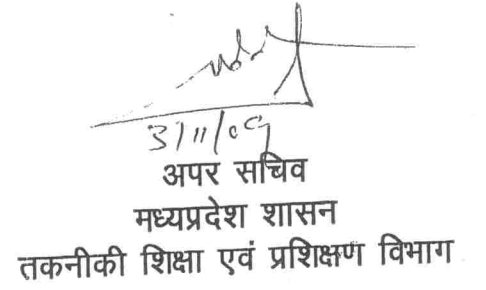 3/11/09
अपर सचिव
मध्यप्रदेश शासन
तकनीकी शिक्षा एवं प्रशिक्षण विभाग